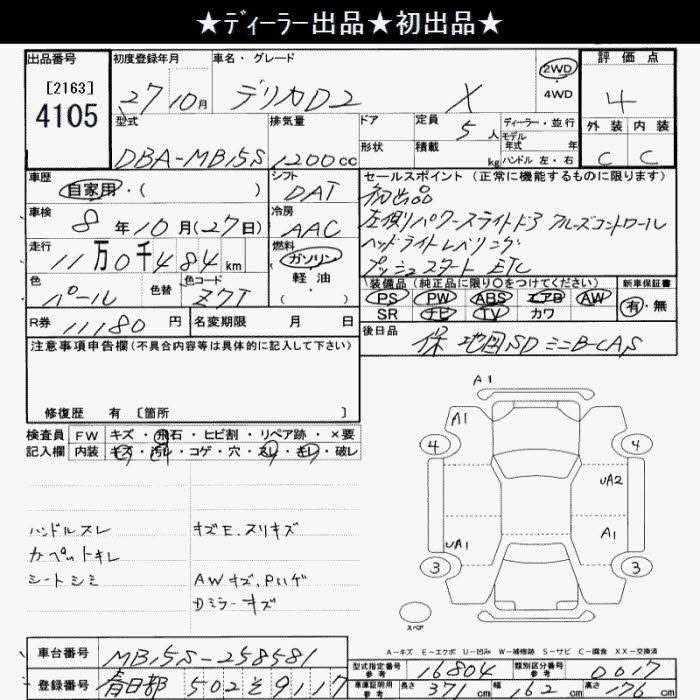 ★ディーラー出品★初出品★
出品番号
[2163]
4105
初度登録年月
27 10月
車名・グレード
デリカD2 X
2WD
・
4WD
評価点
4
外装 内装
C C
型式
DBA-MB15S
排気量
1200cc
ドア
形状
定員
5人
積載
kg
ディーラー・並行
モデル
年式 年
ハンドル 左・右
車歴
自家用・( )
シフト
DAT
セールスポイント(正常に機能するものに限ります)
初出品
左側パワースライドドア クルーズコントロール
ヘッドライトレベリング
プッシュスタート ETC
車検
8年10月(27日)
冷房
AAC
走行
11万0千484km
燃料
ガソリン
軽油
( )
色
パール
色替
色コード
Z7T
装備品(純正品に限り○をつけてください)
新車保証書
PS PW ABS エアB AW
SR ナビ TV カワ
有・無
R券 11180円
名変期限 月 日
後日品
保 地図SD ミニB-CAS
注意事項申告欄(不具合内容等は具体的に記入して下さい)
修復歴 有 [箇所 ]
検査員
記入欄
FW キズ・飛石・ヒビ割・リペア跡・×要
内装 キズ・汚レ・コゲ・穴・スレ・キレ・破レ
ハンドルスレ
カーペットキレ
シートシミ
キズE.スリキズ
AWキズ.Pハゲ
Dミラーキズ
A1
A1
4
4
UA2
UA1
A1
3
3
スペア
A-キズ E-エクボ U-凹み W-補修跡 S-サビ C-腐食 XX-交換済
車台番号
MB15S-258581
登録番号
春日部 502 そ 9117
型式指定番号
参考
16804
類別区分番号
参考
0017
車庫証明用
参考
長さ 371cm
幅 162cm
高さ 176cm